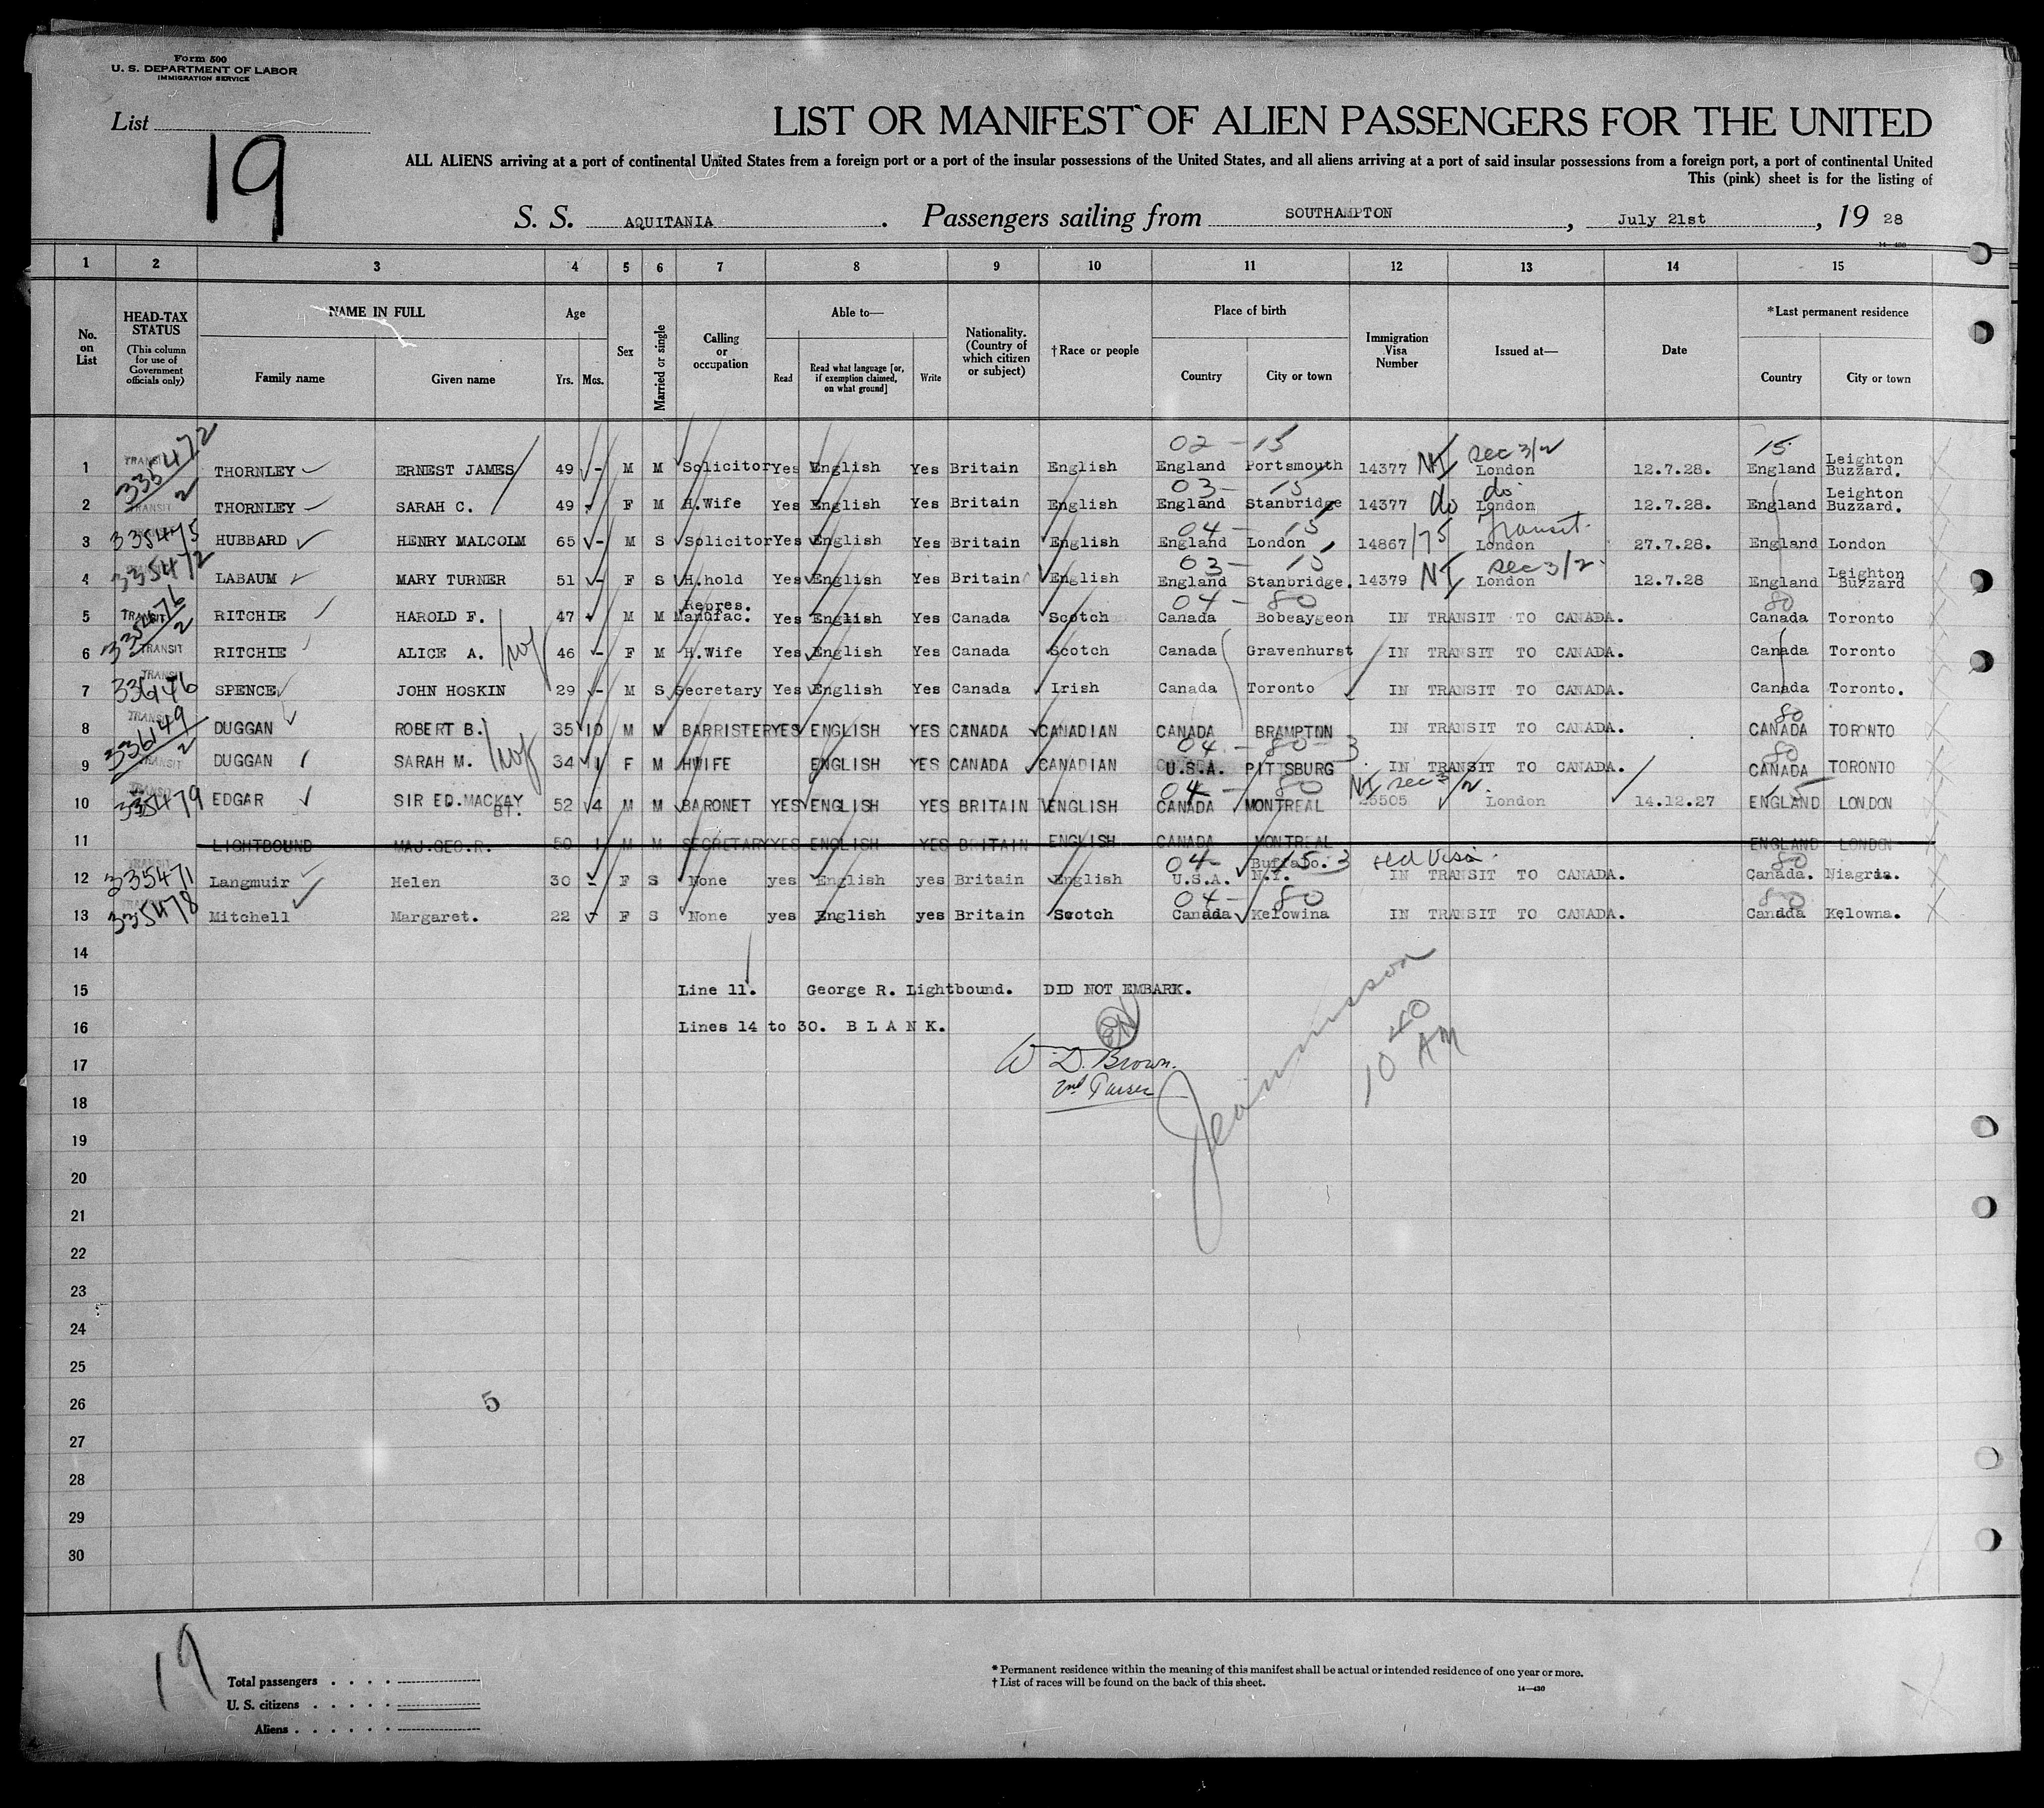 Form 500
U. S. DEPARTMENT OF LABOR
IMMIGRATION SERVICE
List
19
LIST OR MANIFEST OF ALIEN PASSENGERS FOR THE UNITED
ALL ALIENS arriving at a port of continental United States from a foreign port or a port of the insular possessions of the United States, and all aliens arriving at a port of said insular possessions from a foreign port, a port of continental United
This (pink) sheet is for the listing of
S. S. AQUITANIA. Passengers sailing from SOUTHAMPTON, July 21st, 19 28
14-430
1 2 3 4 5 6 7 8 9 10 11 12 13 14 15
No. on List
HEAD-TAX STATUS
(This column for use of Government officials only)
NAME IN FULL
Family name Given name
Age
Yrs. Mos.
Sex
Married or single
Calling or occupation
Able to—
Read
Read what language [or, if exemption claimed, on what ground]
Write
Nationality. (Country of which citizen or subject)
†Race or people
Place of birth
Country City or town
Immigration Visa Number
Issued at—
Date
*Last permanent residence
Country City or town
02 - 15 NI sec 3/2 15
1 TRANSIT 335472/2 THORNLEY ERNEST JAMES 49 - M M Solicitor Yes English Yes Britain English England Portsmouth 14377 London 12.7.28. England Leighton Buzzard.
03 - 15 do do
2 TRANSIT THORNLEY SARAH C. 49 - F M H.Wife Yes English Yes Britain English England Stanbridge 14377 London 12.7.28. England Leighton Buzzard.
04 - 15 Transit
3 335475 HUBBARD HENRY MALCOLM 65 - M S Solicitor Yes English Yes Britain English England London 14867/75 London 27.7.28. England London
03 - 15 NI sec 3/2.
4 335472 LABAUM MARY TURNER 51 - F S H.hold Yes English Yes Britain English England Stanbridge. 14379 London 12.7.28 England Leighton Buzzard
04 - 80 80
5 TRANSIT 335476/2 RITCHIE HAROLD F. 47 - M M Repres. Manufac. Yes English Yes Canada Scotch Canada Bobeaygeon IN TRANSIT TO CANADA. Canada Toronto
6 TRANSIT RITCHIE ALICE A. 46 - F M H.Wife Yes English Yes Canada Scotch Canada Gravenhurst IN TRANSIT TO CANADA. Canada Toronto
7 TRANSIT 336146 SPENCE JOHN HOSKIN 29 - M S Secretary Yes English Yes Canada Irish Canada Toronto IN TRANSIT TO CANADA. Canada Toronto.
80
8 TRANSIT 336149/2 DUGGAN ROBERT B. 35 10 M M BARRISTER YES ENGLISH YES CANADA CANADIAN CANADA BRAMPTON IN TRANSIT TO CANADA. CANADA TORONTO
04 - 80 - 3 80
9 TRANSIT DUGGAN SARAH M. 34 1 F M HWIFE ENGLISH YES CANADA CANADIAN U.S.A. PITTSBURG IN TRANSIT TO CANADA. CANADA TORONTO
04 - 80 NI sec 3/2. 15
10 335479 EDGAR SIR ED.MACKAY BT. 52 4 M M BARONET YES ENGLISH YES BRITAIN ENGLISH CANADA MONTREAL London 14.12.27 ENGLAND LONDON
11 LIGHTBOUND MAJ.GEO.R. 50 1 M M SECRETARY YES ENGLISH YES BRITAIN ENGLISH CANADA MONTREAL ENGLAND LONDON
04 - 15 - 3 80
12 335471 Langmuir Helen 30 - F S None yes English yes Britain English U.S.A. Buffalo. N.Y. IN TRANSIT TO CANADA. Canada. Niagria.
04 - 80 80
13 335478 Mitchell Margaret. 22 - F S None yes English yes Britain Scotch Canada Kelowina IN TRANSIT TO CANADA. Canada Kelowna.
14
15 Line 11. George R. Lightbound. DID NOT EMBARK.
16 Lines 14 to 30. B L A N K.
17 W. D. Brown.
2nd Purser
18
10 40 AM
19
20
21
22
23
24
25
26
5
27
28
29
30
19
Total passengers . . . .
U. S. citizens . . . . .
Aliens . . . . . .
* Permanent residence within the meaning of this manifest shall be actual or intended residence of one year or more.
† List of races will be found on the back of this sheet.
14—430